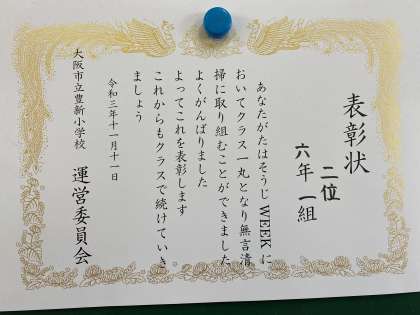 表彰状
二位
六年一組
あなたがたはそうじWEEKに
おいてクラス一丸となり無言清
掃に取り組むことができました
よくがんばりました
よってこれを表彰します
これからもクラスで続けていき
ましょう
令和三年十一月十一日
大阪市立豊新小学校
運営委員会